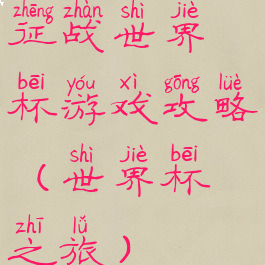 zhēng zhàn shì jiè
征战世界
bēi yóu xì gōng lüè
杯游戏攻略
shì jiè bēi
（世界杯
zhī lǚ
之旅）